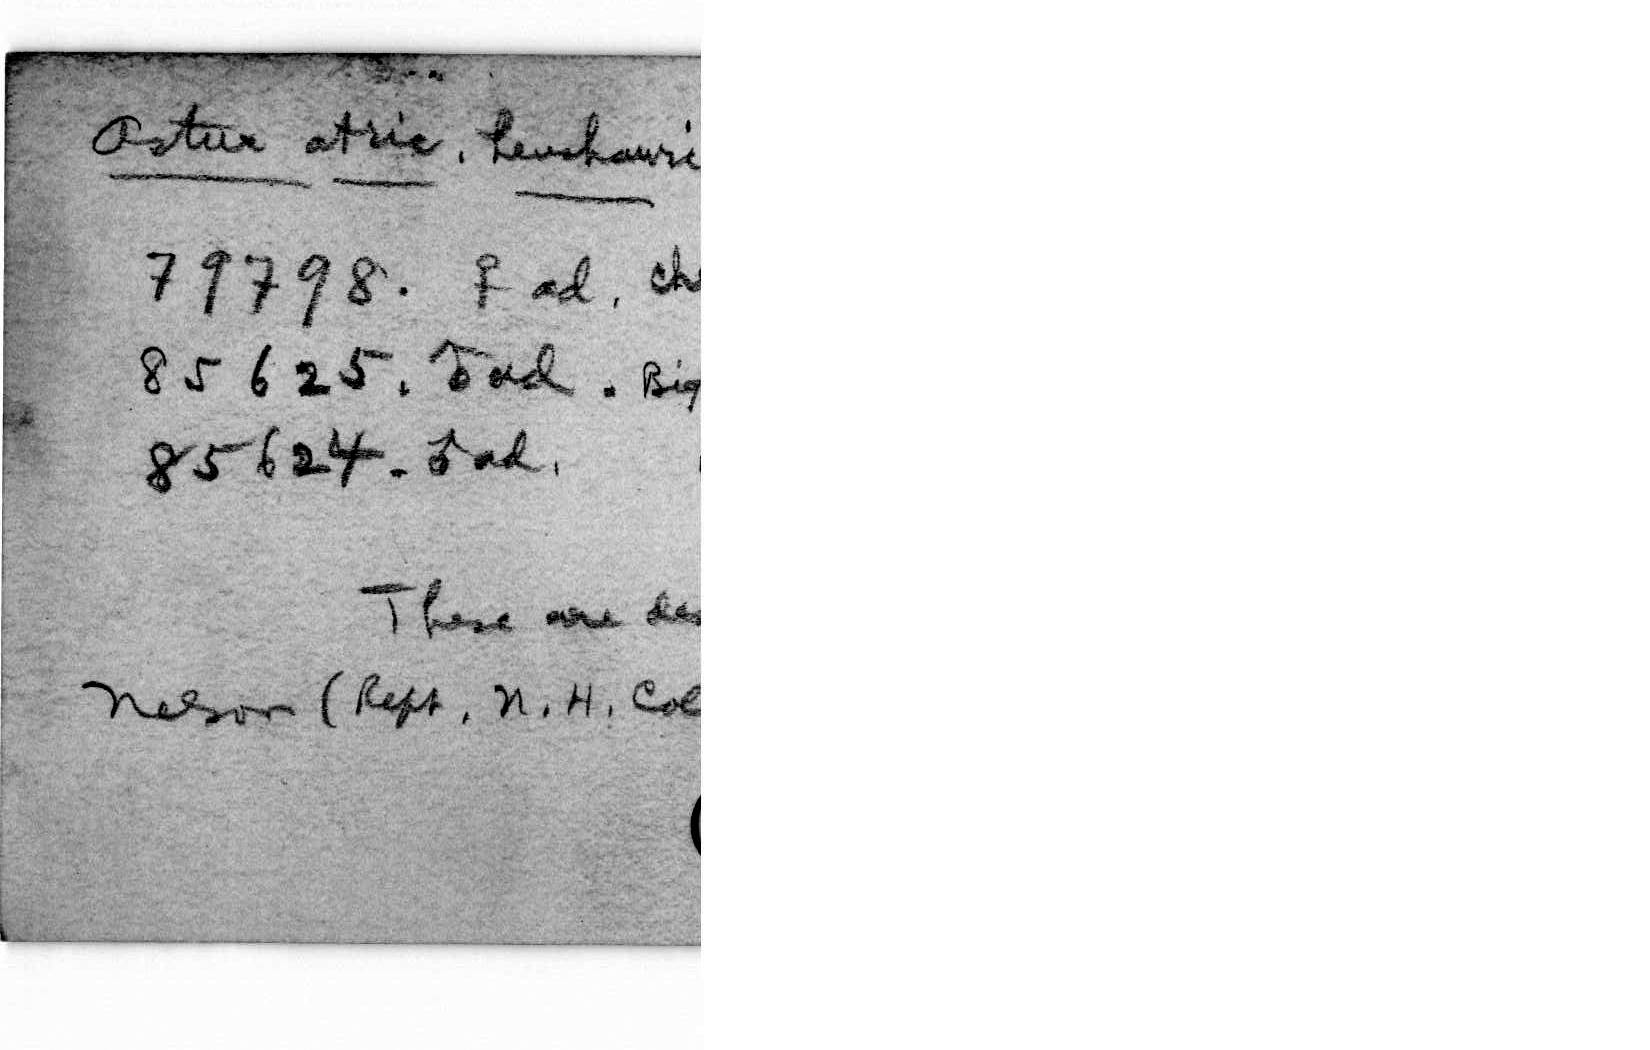 Astur atric. henshawi
79798. ♀ ad. Ch
85625. ♂ ad. Big
85624. ♂ ad.
These are des
Nelson (Rept. N. H. Col